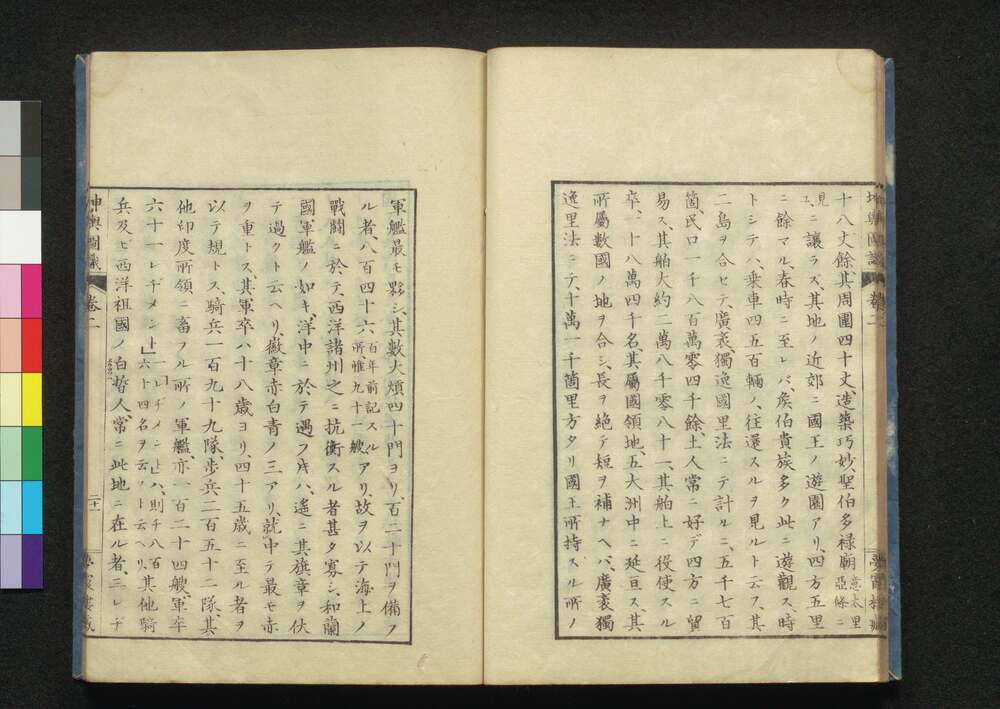 十八丈餘其周圍四十丈、造築巧妙、聖伯多祿廟意太里亞條ニ
見ユニ讓ラズ、其地ノ近郊ニ國王ノ遊園アリ、四方五里
ニ餘マル、春時ニ至レバ、矦伯貴族多ク此ニ遊觀ス、時
トシテハ、乗車四五百輛ノ、往還スルヲ見ルト云フ、其
二島ヲ合セテ、廣袤獨逸國里法ニテ計ルニ、五千七百
箇、民口一千八百萬零四千餘、土人常ニ好デ四方ニ貿
易ス、其舶大約二萬八千零八十一、其舶上ニ役使スル
卒、十八萬四千名、其屬國領地、五大洲中ニ延亘ス、其
所屬數國ノ地ヲ合シ、長ヲ絶テ短ヲ補ナヘバ、廣袤獨
逸里法ニテ、十萬一千箇里方タリ國王所持スル所ノ
坤輿圖識
卷二
軍艦最モ夥シ、其數大煩四十門ヨリ、百二十門ヲ備フ
ル者八百四十六百年前記スル所惟九十一艘アリ、故ヲ以テ海上ノ
戰鬪ニ於テ、西洋諸州之ニ抗衡スル者甚タ寡シ、和蘭
國軍艦ノ如キ、洋中ニ於テ遇フ片ハ、遙ニ其旗章ヲ伏
テ過クト云ヘリ、徽章赤白青ノ三アリ、就中テ最モ赤
ヲ重トス、其軍卒ハ十八歳ヨリ、四十五歳ニ至ル者ヲ
以テ規トス、騎兵一百九十九隊、歩兵二百五十二隊、其
他印度所領ニ畜フル所ノ軍艦、亦一百二十四艘、軍卒
六十一レヂメント一レヂメントハ、則チ八百六十四名ヲ云フト云ヘリ、其他騎
兵及ビ西洋祖國ノ白皙人、常ニ此地ニ在ル者、三レヂ
坤輿圖識
卷二
二十一
夢霞樓藏